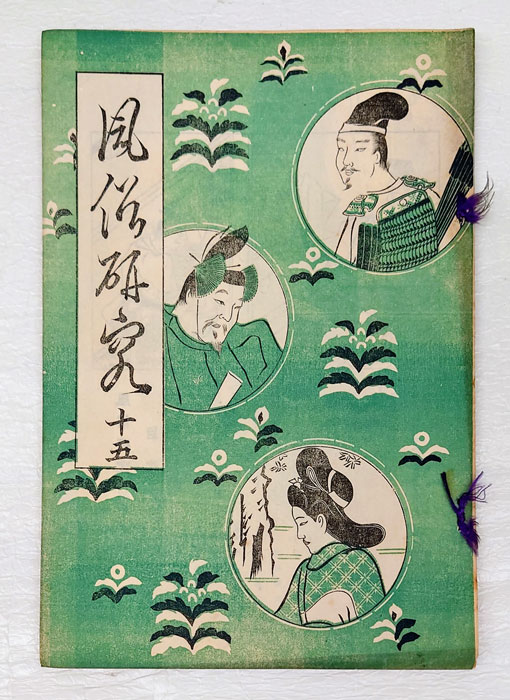 風俗研究 十五